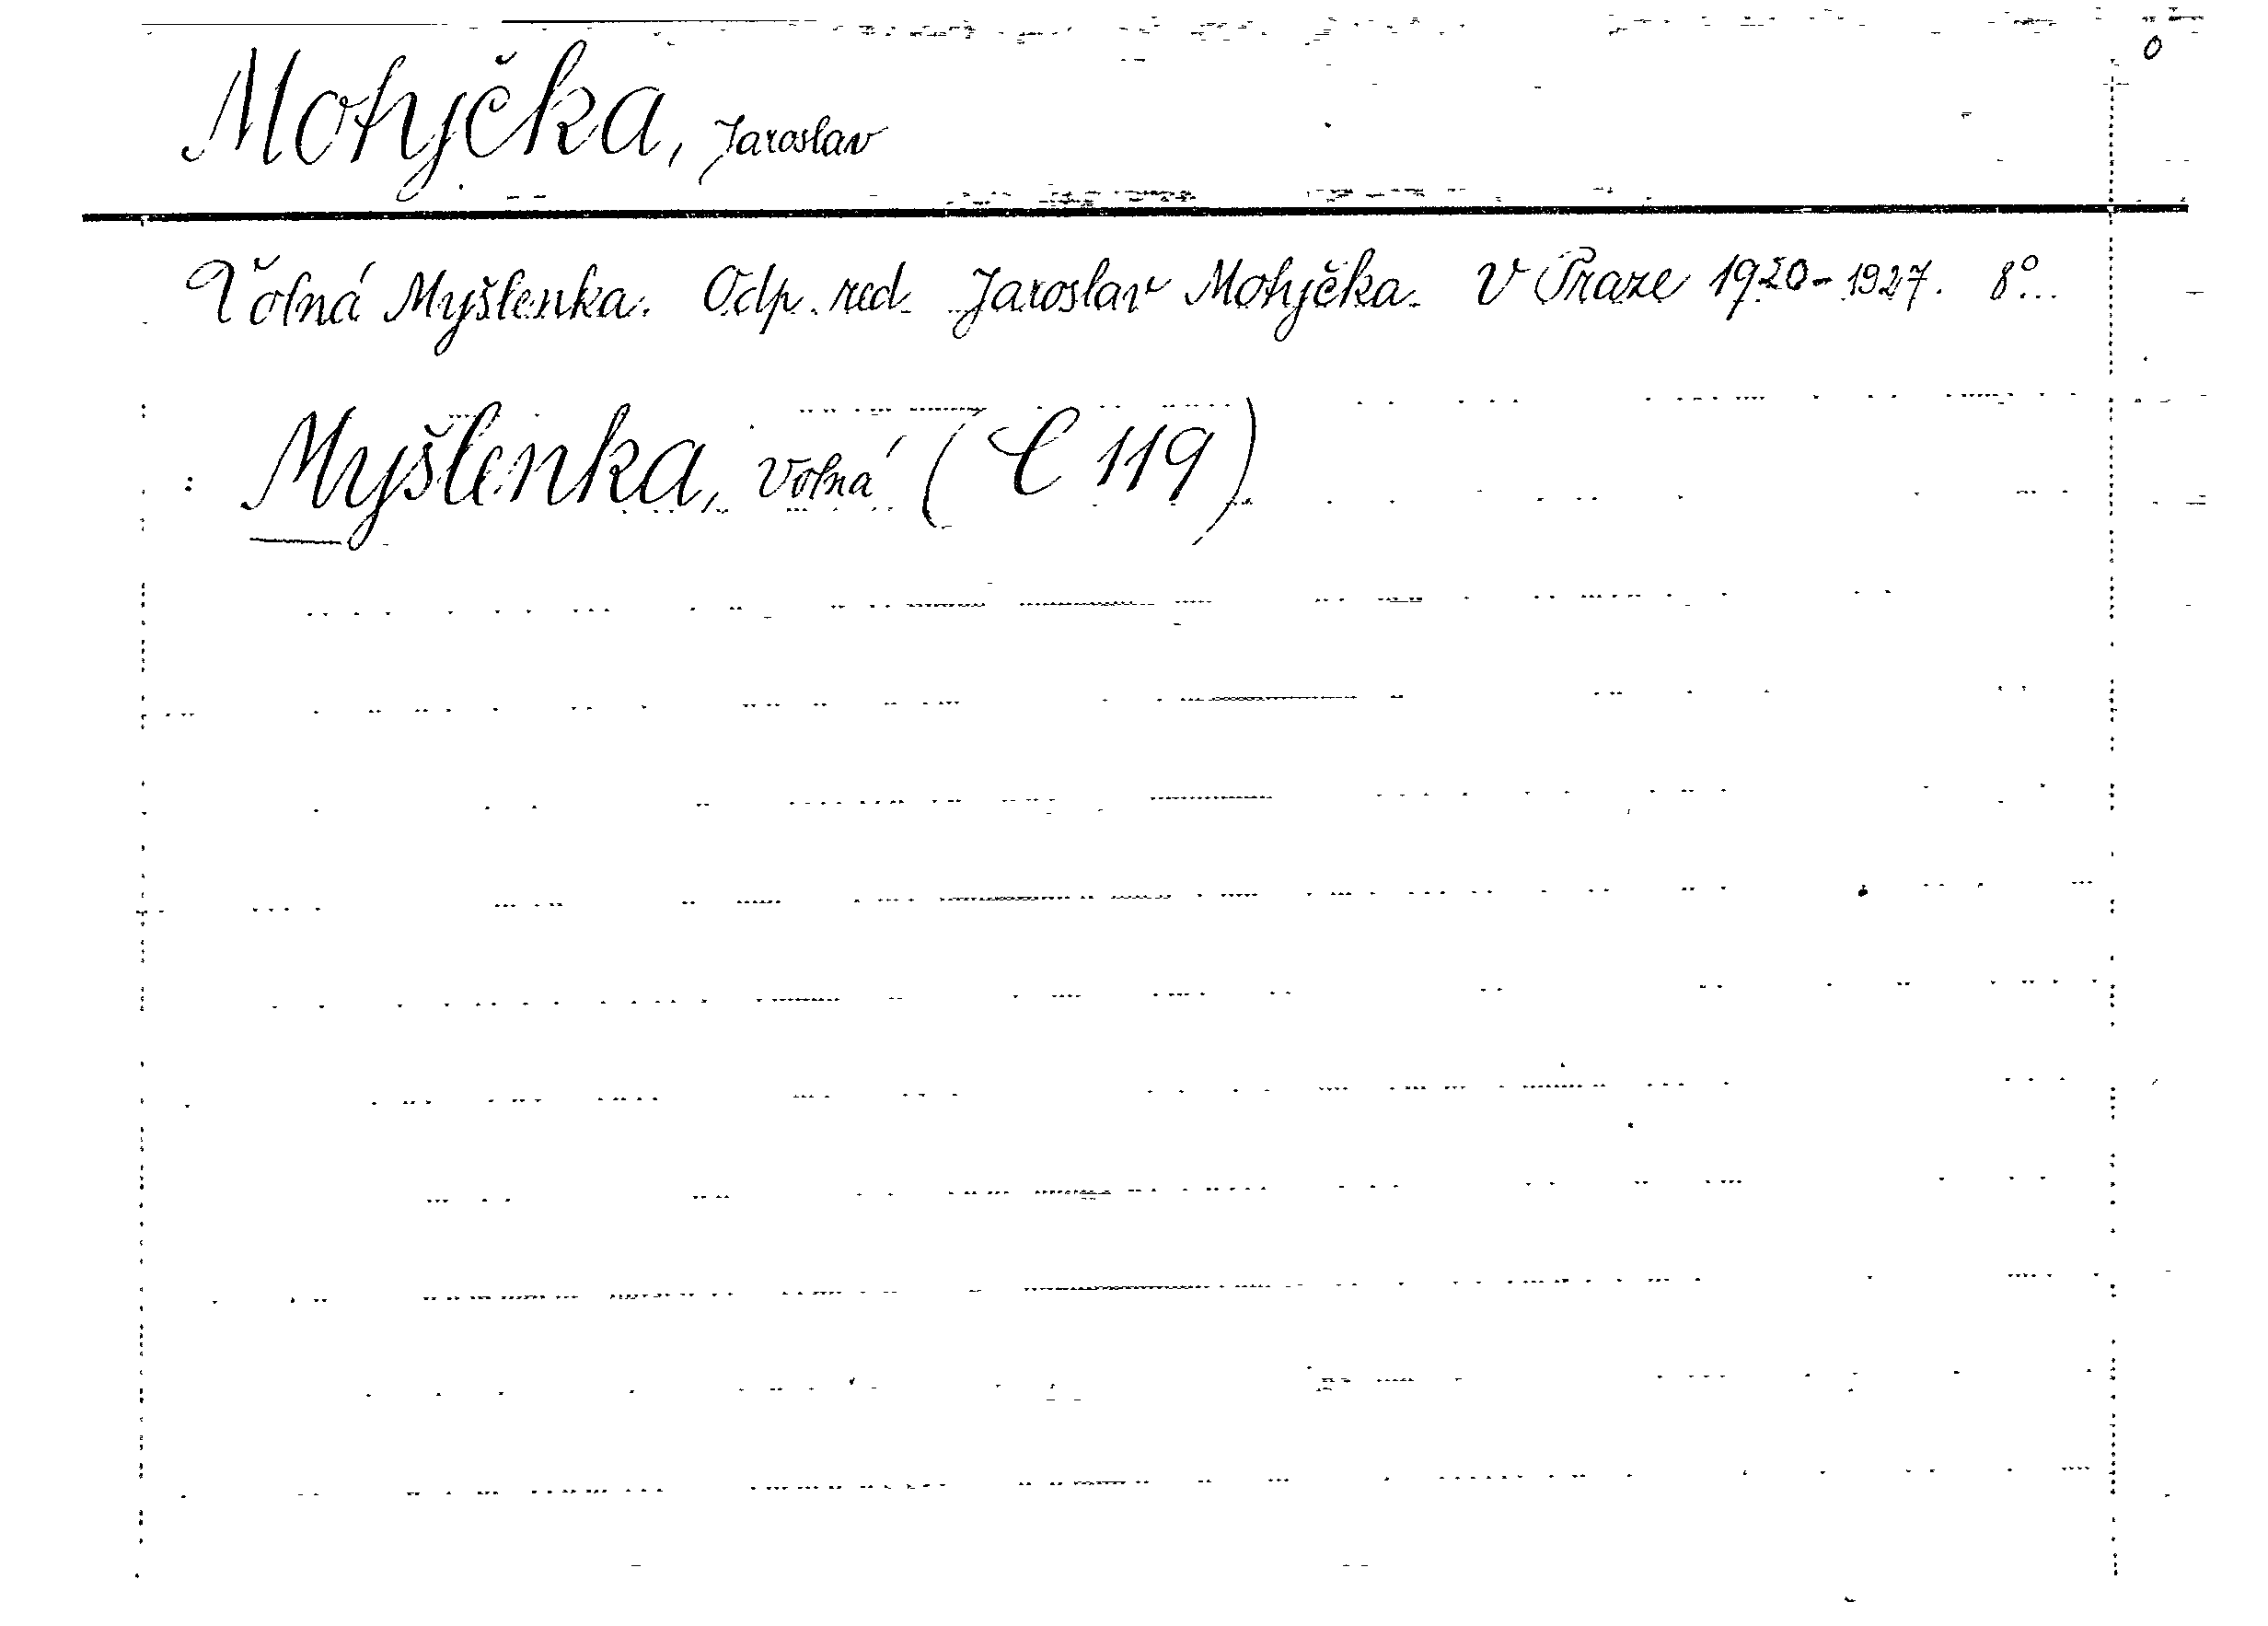 Mohyčka, Jaroslav
Volná Myšlenka. Odp. red. Jaroslav Mohyčka. V Praze 1920-1927. 8°...
: Myšlenka, volná (C 119)